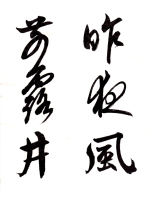 昨夜風
開露井